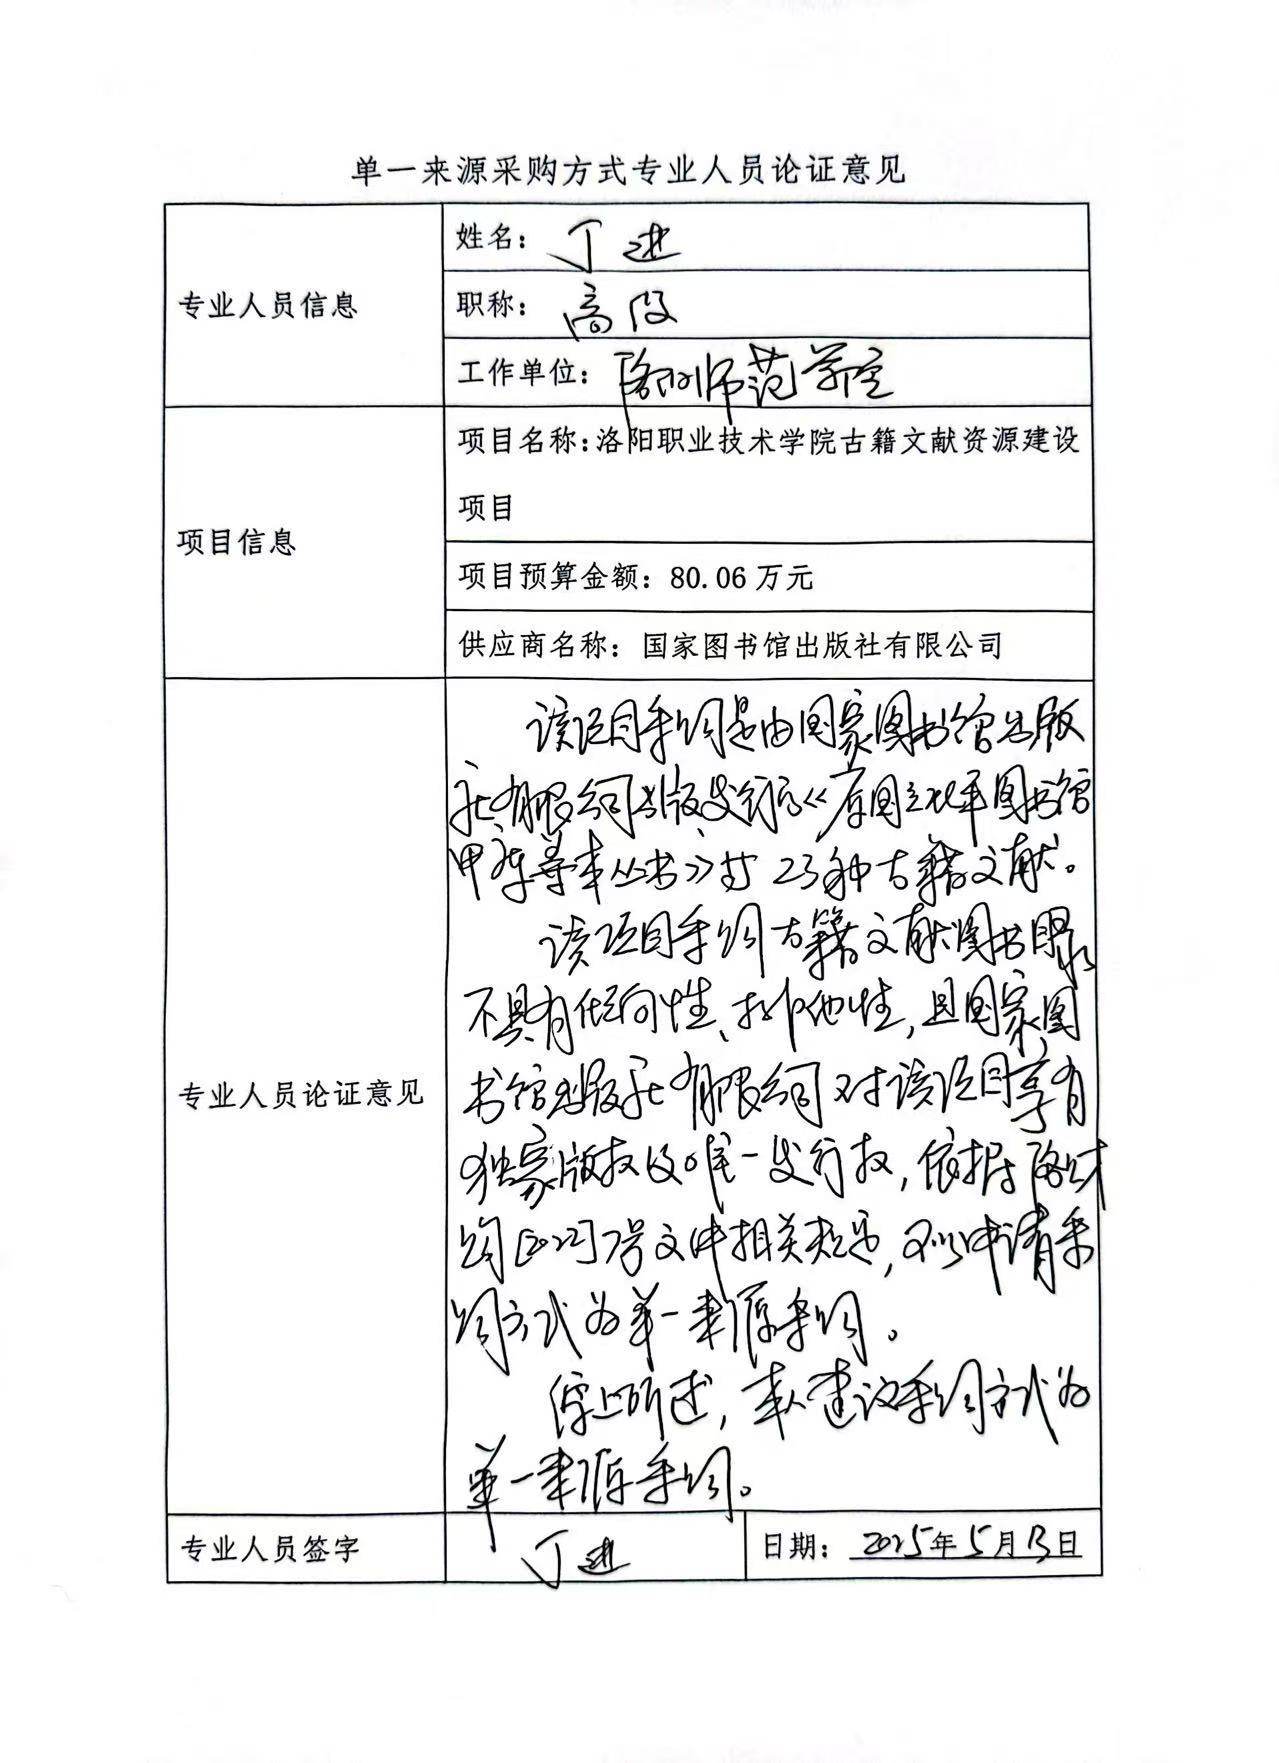 单一来源采购方式专业人员论证意见
专业人员信息
姓名：丁进
职称：高段
工作单位：洛阳师范学院
项目信息
项目名称：洛阳职业技术学院古籍文献资源建设
项目
项目预算金额：80.06 万元
供应商名称：国家图书馆出版社有限公司
专业人员论证意见
该项目采购是由国家图书馆出版
社有限公司出版发行的《原国立北平图书馆
甲库善本丛书》等23种古籍文献。
该项目采购古籍文献图书目录
不具有倾向性、排他性，且国家图
书馆出版社有限公司对该项目享有
独家版权及唯一发行权，依据洛财
购[2022]7号文件相关规定，可以申请采
购方式为单一来源采购。
综上所述，本人建议采购方式为
单一来源采购。
专业人员签字
丁进
日期：2025年5月13日